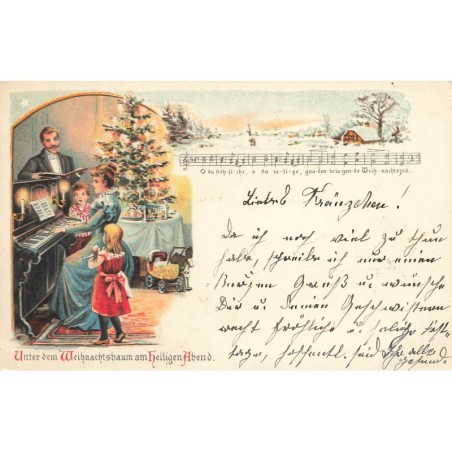 O du fröh-li-che, o du se-li-ge, gna-den-brin-gen-de Weih-nachtszeit.
Liebes Kränzchen!
Da ich noch viel zu thun
habe, schreibe ich nur einen
Gruß u. wünsche
Dir u. Deinen Geschwistern
recht fröhliche u. selige Fest-
tage, hoffentl. seid Ihr alle
gesund.
Unter dem Weihnachtsbaum am Heiligen Abend.